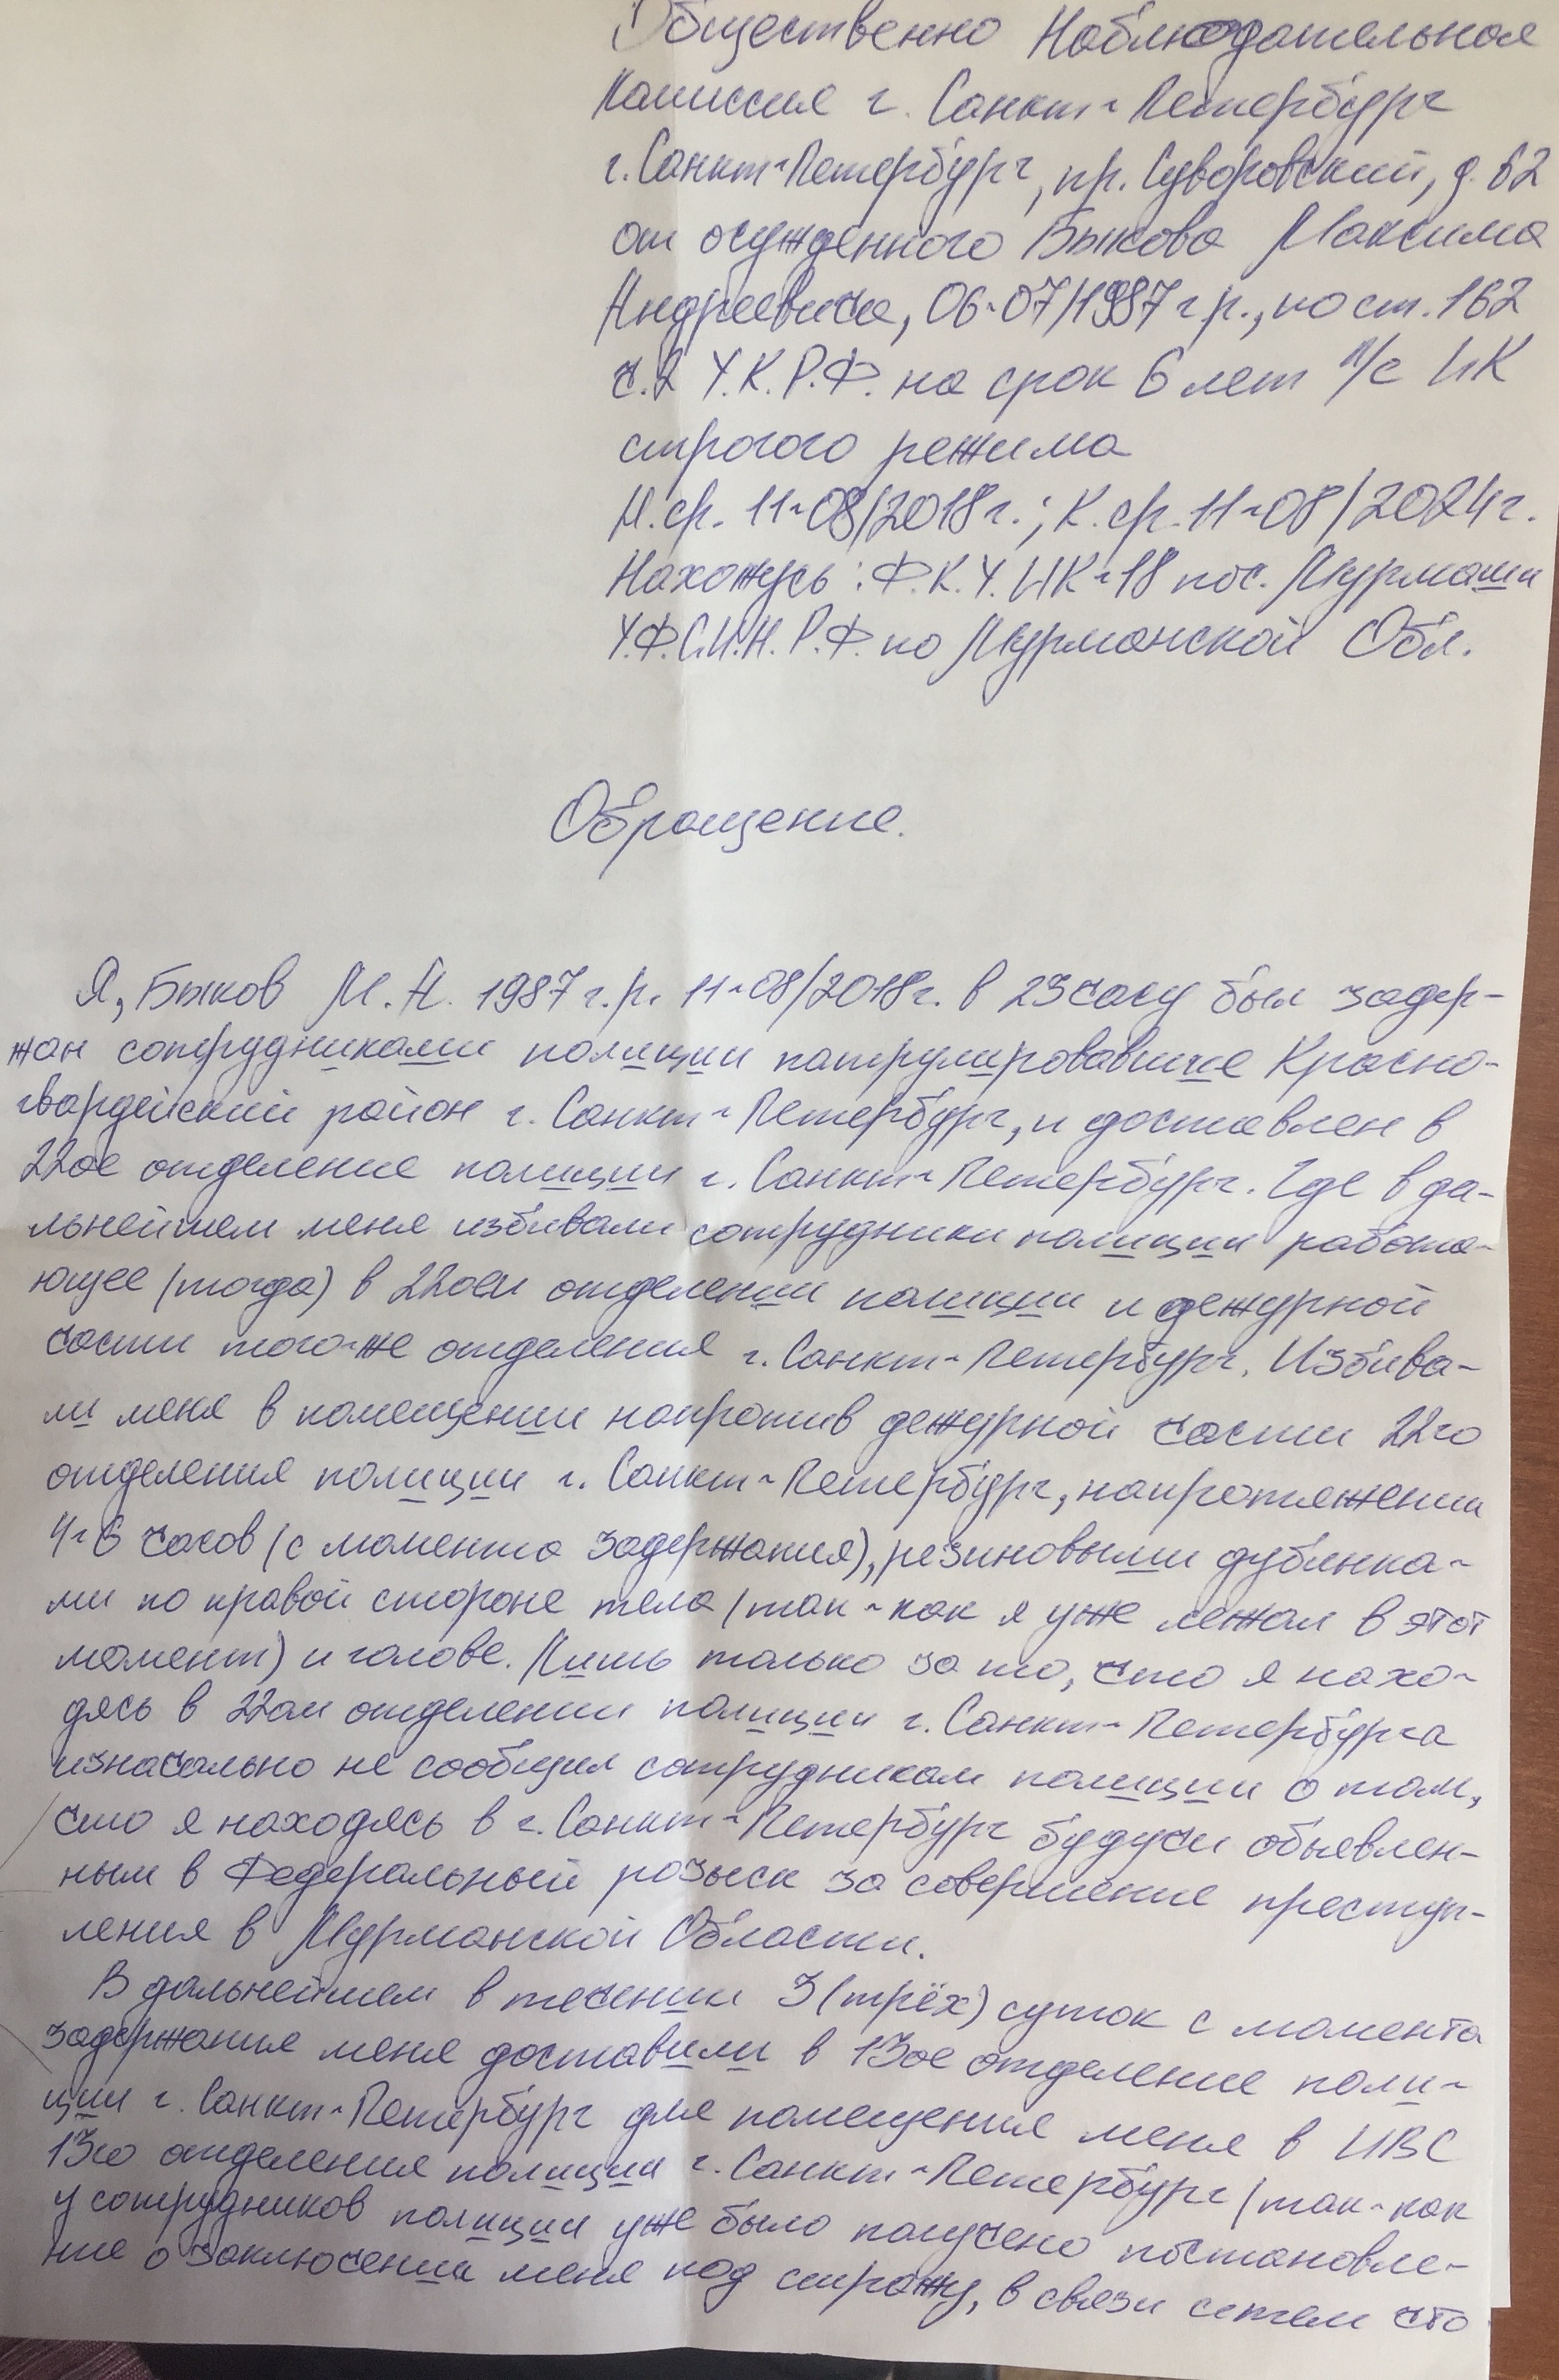 Общественно Наблюдательная
Комиссия г. Санкт-Петербург
г. Санкт-Петербург, пр. Суворовский, д. 62
от осужденного Быкова Максима
Андреевича, 06-07/1987 г.р., по ст. 162
ч.2 У.К.Р.Ф. на срок 6 лет л/с ИК
строгого режима
Н.ср. 11-08/2018г.; К.ср. 11-08/2024г.
Нахожусь: Ф.К.У. ИК-18 пос. Мурмаши
У.Ф.С.И.Н. Р.Ф. по Мурманской Обл.
Обращение.
Я, Быков М.А. 1987 г.р. 11-08/2018г. в 23 часу был задер-
жан сотрудниками полиции патрулировавшие Красно-
гвардейский район г. Санкт-Петербург, и доставлен в
22ое отделение полиции г. Санкт-Петербург. Где в да-
льнейшем меня избивали сотрудники полиции работа-
ющее (тогда) в 22ом отделении полиции и дежурной
части того-же отделения г. Санкт-Петербург. Избива-
ли меня в помещении напротив дежурной части 22го
отделения полиции г. Санкт-Петербург, напротяжении
4-6 часов (с момента задержания), резиновыми дубинка-
ми по правой стороне тела (так-как я уже лежал в этот
момент) и голове. Лишь только за то, что я нахо-
дясь в 22ом отделении полиции г. Санкт-Петербурга
изначально не сообщил сотрудникам полиции о том,
что я находясь в г. Санкт-Петербург будучи объявлен-
ным в Федеральный розыск за совершение преступ-
ления в Мурманской Области.
В дальнейшем в течении 3 (трёх) суток с момента
задержания меня доставили в 13ое отделение поли-
ции г. Санкт-Петербург для помещения меня в ИВС
13го отделения полиции г. Санкт-Петербург (так-как
у сотрудников полиции уже было получено постановле-
ние о заключении меня под стражу, в связи с тем что